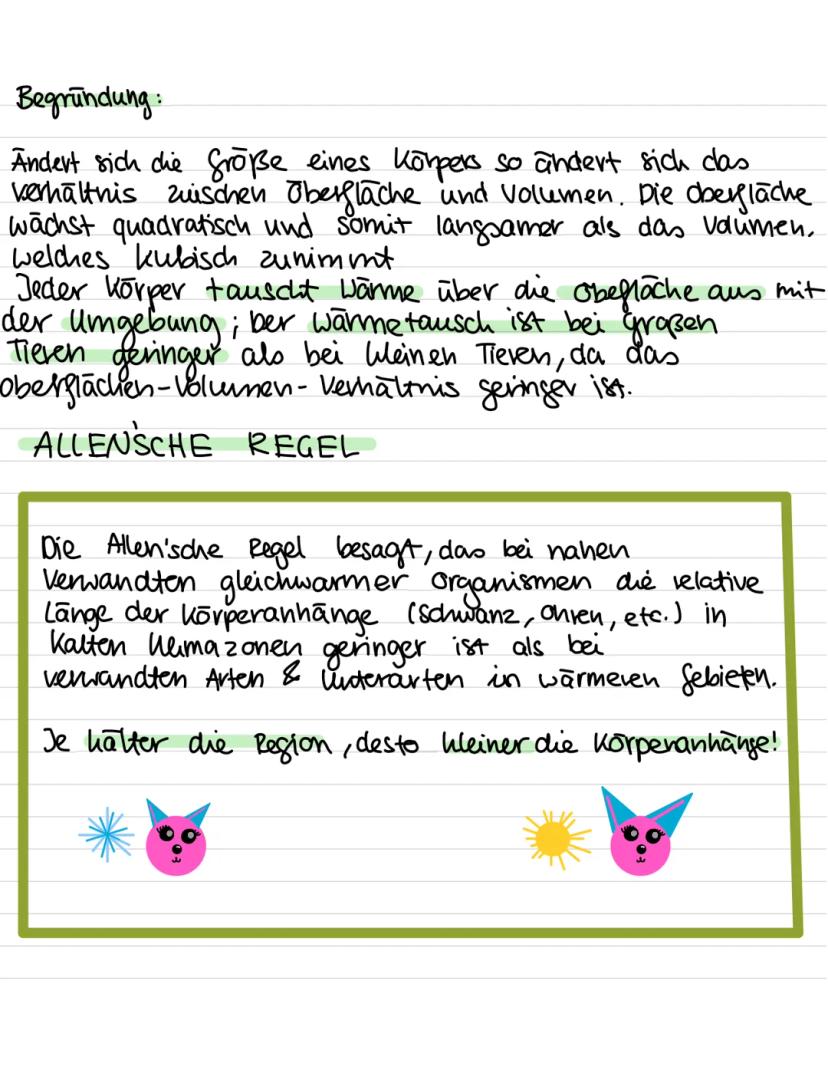 Begründung:
Ändert sich die Größe eines Körpers so ändert sich das
Verhältnis zwischen Oberfläche und Volumen. Die Oberfläche
wächst quadratisch und somit langsamer als das Volumen,
welches kubisch zunimmt
Jeder Körper tauscht Wärme über die Obefläche aus mit
der Umgebung; Der Wärmetausch ist bei großen
Tieren geringer als bei kleinen Tieren, da das
Oberflächen-Volumen-Verhältnis geringer ist.
ALLEN'SCHE REGEL
Die Allen'sche Regel besagt, das bei nahen
Verwandten gleichwarmer Organismen die relative
Länge der Körperanhänge (Schwanz, Ohren, etc.) in
Kalten Klimazonen geringer ist als bei
verwandten Arten & Unterarten in wärmeren Gebieten.
Je kälter die Region, desto kleiner die Körperanhänge!